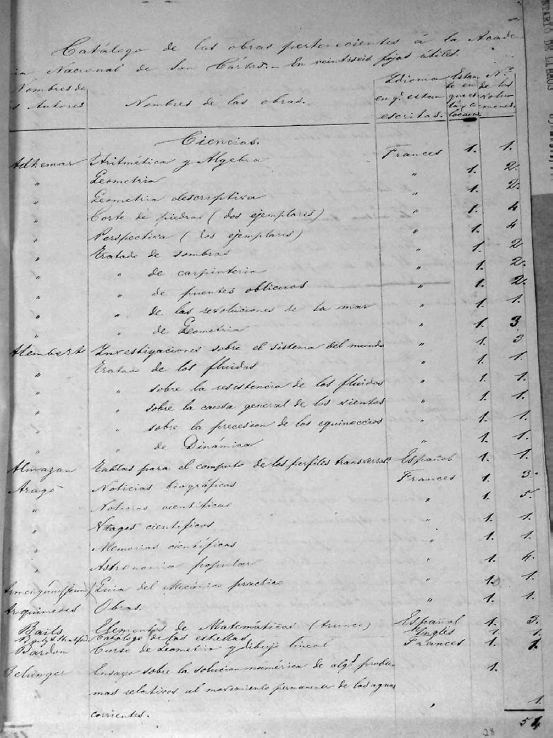 Catálogo de las obras pertenecientes á la Acade
Nacional de San Cárlos. En veintiseis fojas útiles.
Nombres de Autores Nombres de las obras. Idioma en q.e estan escritas. Estante en que están Nº de los
Ciencias.
Adhemar Aritmética y Algebra Frances 1. 1.
" Geometria " 1. 2.
" Geometria descriptiva " 1. 2.
" Corte de piedras (dos ejemplares) " 1. 4
" Perspectiva (dos ejemplares) " 1. 4
" Tratado de sombras " 1. 2
" " de carpinteria " 1. 2.
" " de puentes oblicuos " 1. 2.
" " de las revoluciones de la mar " 1. 1.
" " de Geometria " 1. 3.
Alembert Investigaciones sobre el sistema del mundo " 1. 3
" Tratado de los fluidos " 1. 1.
" " sobre la resistencia de los fluidos " 1. 1.
" " sobre la causa general de los vientos " 1. 1.
" " sobre la precesion de los equinoccios " 1. 1.
" " de Dinámica " 1. 1.
Almazan Tablas para el computo de los perfiles transversal. Español 1. 1.
Arago Noticias biográficas Frances 1. 3.
" Noticias cientificas " 1. 5.
" Viages cientificos " 1. 1.
" Memorias cientificas " 1. 1.
" Astronomia popular " 1. 4.
Guia del Mecánico practico " 1. 1.
Arquimedes Obras. " 1. 1.
Bails Elementos de Matematicas (trunco) Español 1. 3.
Catálogo de las estrellas. Ingles 1. 1.
Bardon Curso de Geometria y dibujo lineal Frances 1. 1.
Belanger Ensayo sobre la solucion numérica de alg.s proble- 1.
mas relativos al movimiento permanente de las aguas
corrientes. " 1.
54